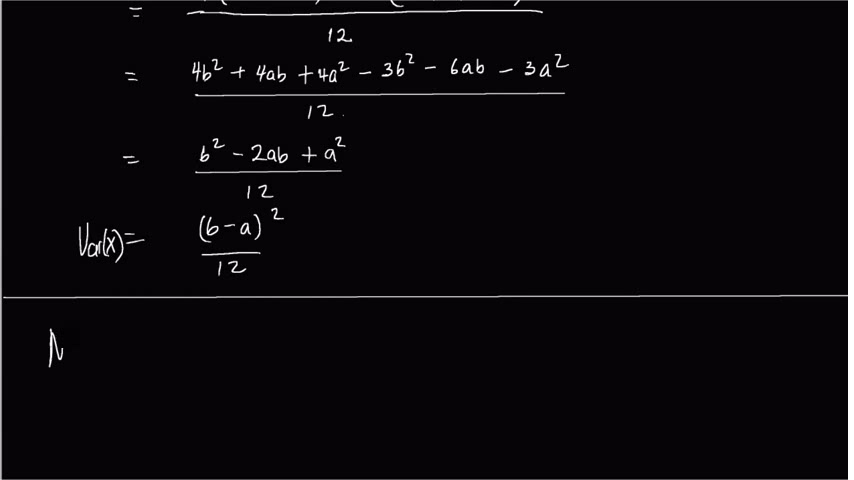 =
12
= 4b² + 4ab + 4a² − 3b² − 6ab − 3a²
12
= b² − 2ab + a²
12
Var(x) = (b−a)²
12